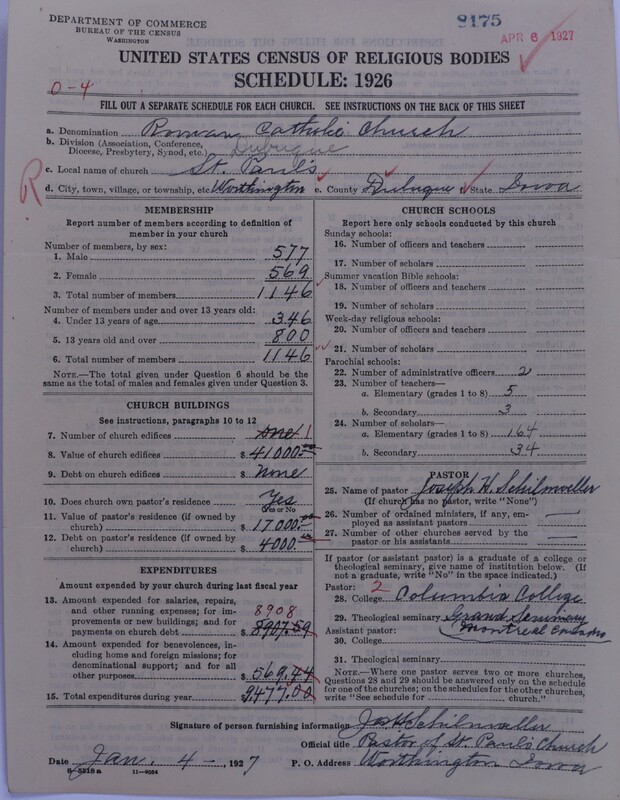 DEPARTMENT OF COMMERCE
BUREAU OF THE CENSUS
WASHINGTON
8175
APR 6 1927
UNITED STATES CENSUS OF RELIGIOUS BODIES
SCHEDULE: 1926
0-4
FILL OUT A SEPARATE SCHEDULE FOR EACH CHURCH. SEE INSTRUCTIONS ON THE BACK OF THIS SHEET
a. Denomination Roman Catholic Church
b. Division (Association, Conference, Diocese, Presbytery, Synod, etc.) Dubuque
c. Local name of church St. Paul's
R
d. City, town, village, or township, etc Worthington e. County Dubuque f. State Iowa
MEMBERSHIP
Report number of members according to definition of
member in your church
Number of members, by sex:
1. Male 577
2. Female 569
3. Total number of members 1146
Number of members under and over 13 years old:
4. Under 13 years of age 346
5. 13 years old and over 800
6. Total number of members 1146
NOTE.—The total given under Question 6 should be
same as the total of males and females given under Question 3.
CHURCH BUILDINGS
See instructions, paragraphs 10 to 12
7. Number of church edifices one 1
8. Value of church edifices $ 41000.00
9. Debt on church edifices $ none
10. Does church own pastor's residence Yes
Yes or No
11. Value of pastor's residence (if owned by
church) $ 17,000.00
12. Debt on pastor's residence (if owned by
church) $ 4000.00
EXPENDITURES
Amount expended by your church during last fiscal year
13. Amount expended for salaries, repairs,
and other running expenses; for im-
provements or new buildings; and for
payments on church debt $ 8907.59
8908
14. Amount expended for benevolences, in-
cluding home and foreign missions; for
denominational support; and for all
other purposes $ 569.44
15. Total expenditures during year $ 9477.00
CHURCH SCHOOLS
Report here only schools conducted by this church
Sunday schools:
16. Number of officers and teachers
17. Number of scholars
Summer vacation Bible schools:
18. Number of officers and teachers
19. Number of scholars
Week-day religious schools:
20. Number of officers and teachers
21. Number of scholars
Parochial schools:
22. Number of administrative officers 2
23. Number of teachers—
a. Elementary (grades 1 to 8) 5
b. Secondary 3
24. Number of scholars—
a. Elementary (grades 1 to 8) 164
b. Secondary 34
PASTOR
25. Name of pastor Joseph H. Schilmoeller
(If church has no pastor, write "None")
26. Number of ordained ministers, if any, em-
ployed as assistant pastors —
27. Number of other churches served by the
pastor or his assistants —
If pastor (or assistant pastor) is a graduate of a college or
theological seminary, give name of institution below. (If
not a graduate, write "No" in the space indicated.)
Pastor: 2
28. College Columbia College
29. Theological seminary Grand Seminary
Montreal Canada
Assistant pastor:
30. College
31. Theological seminary
NOTE.—Where one pastor serves two or more churches,
Questions 28 and 29 should be answered only on the schedule
for one of the churches; on the schedules for the other churches,
write "See schedule for church."
Signature of person furnishing information Jos H Schilmoeller
Official title Pastor of St. Paul's Church
Date Jan. 4 -, 1927 P. O. Address Worthington Iowa
8-5218 a 11-9054